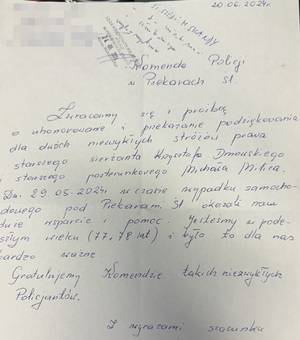 20.06.2024r.
Komenda Policji
w Piekarach Śl.
Zwracamy się z prośbą
o uhonorowanie i przekazanie podziękowania
dla dwóch niezwykłych stróżów prawa
starszego sierżanta Krzysztofa
i starszego posterunkowego Michała
Dn. 29.05.2024r. w czasie wypadku samocho-
dowego pod Piekarami Śl okazali nam
duże wsparcie i pomoc. Jesteśmy w pode-
szłym wieku (77, 78 lat) i było to dla nas
bardzo ważne.
Gratulujemy Komendzie takich niezwykłych
Policjantów.
Z wyrazami szacunku